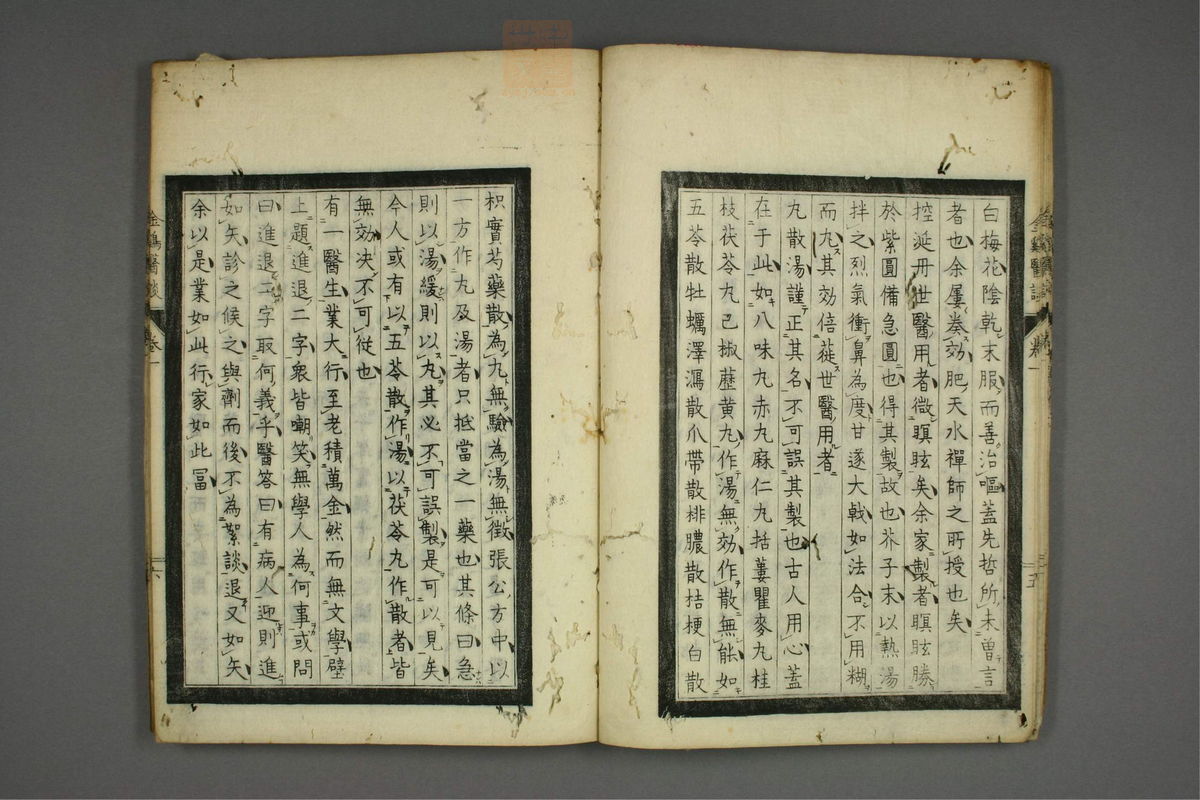 白梅花陰乾末服而善治嘔蓋先哲所未曽言
者也余屢奏効肥天水禪師之所授也矣
控涎丹世醫用者微瞑眩矣余家製者瞑眩勝
於紫圓備急圓也得其製故也芥子末以熱湯
拌之烈氣衝鼻為度甘遂大戟如法合不用糊
而丸其効倍蓰世醫用者
丸散湯謹正其名不可誤其製也古人用心蓋
在于此如八味丸赤丸麻仁丸括蔞瞿麥丸桂
枝茯苓丸己椒藶黄丸作湯無効作散無能如
五苓散牡蠣澤瀉散瓜帶散排膿散桔梗白散
枳實芍藥散為丸無驗為湯無徴張公方中以
一方作丸及湯者只抵當之一藥也其條曰急
則以湯緩則以丸其必不可誤製是可以見矣
今人或有以五苓散作湯以茯苓丸作散者皆
無効决不可從也
有一醫生業大行至老積萬金然而無文學壁
上題進退二字衆皆嘲笑無學人為何事或問
曰進退二字取何義乎醫答曰有病人迎則進
如矢診之候之與劑而後不為絮談退又如矢
余以是業如此行家如此冨
金鷄醫談
卷一
五
金鷄醫談
卷一
六